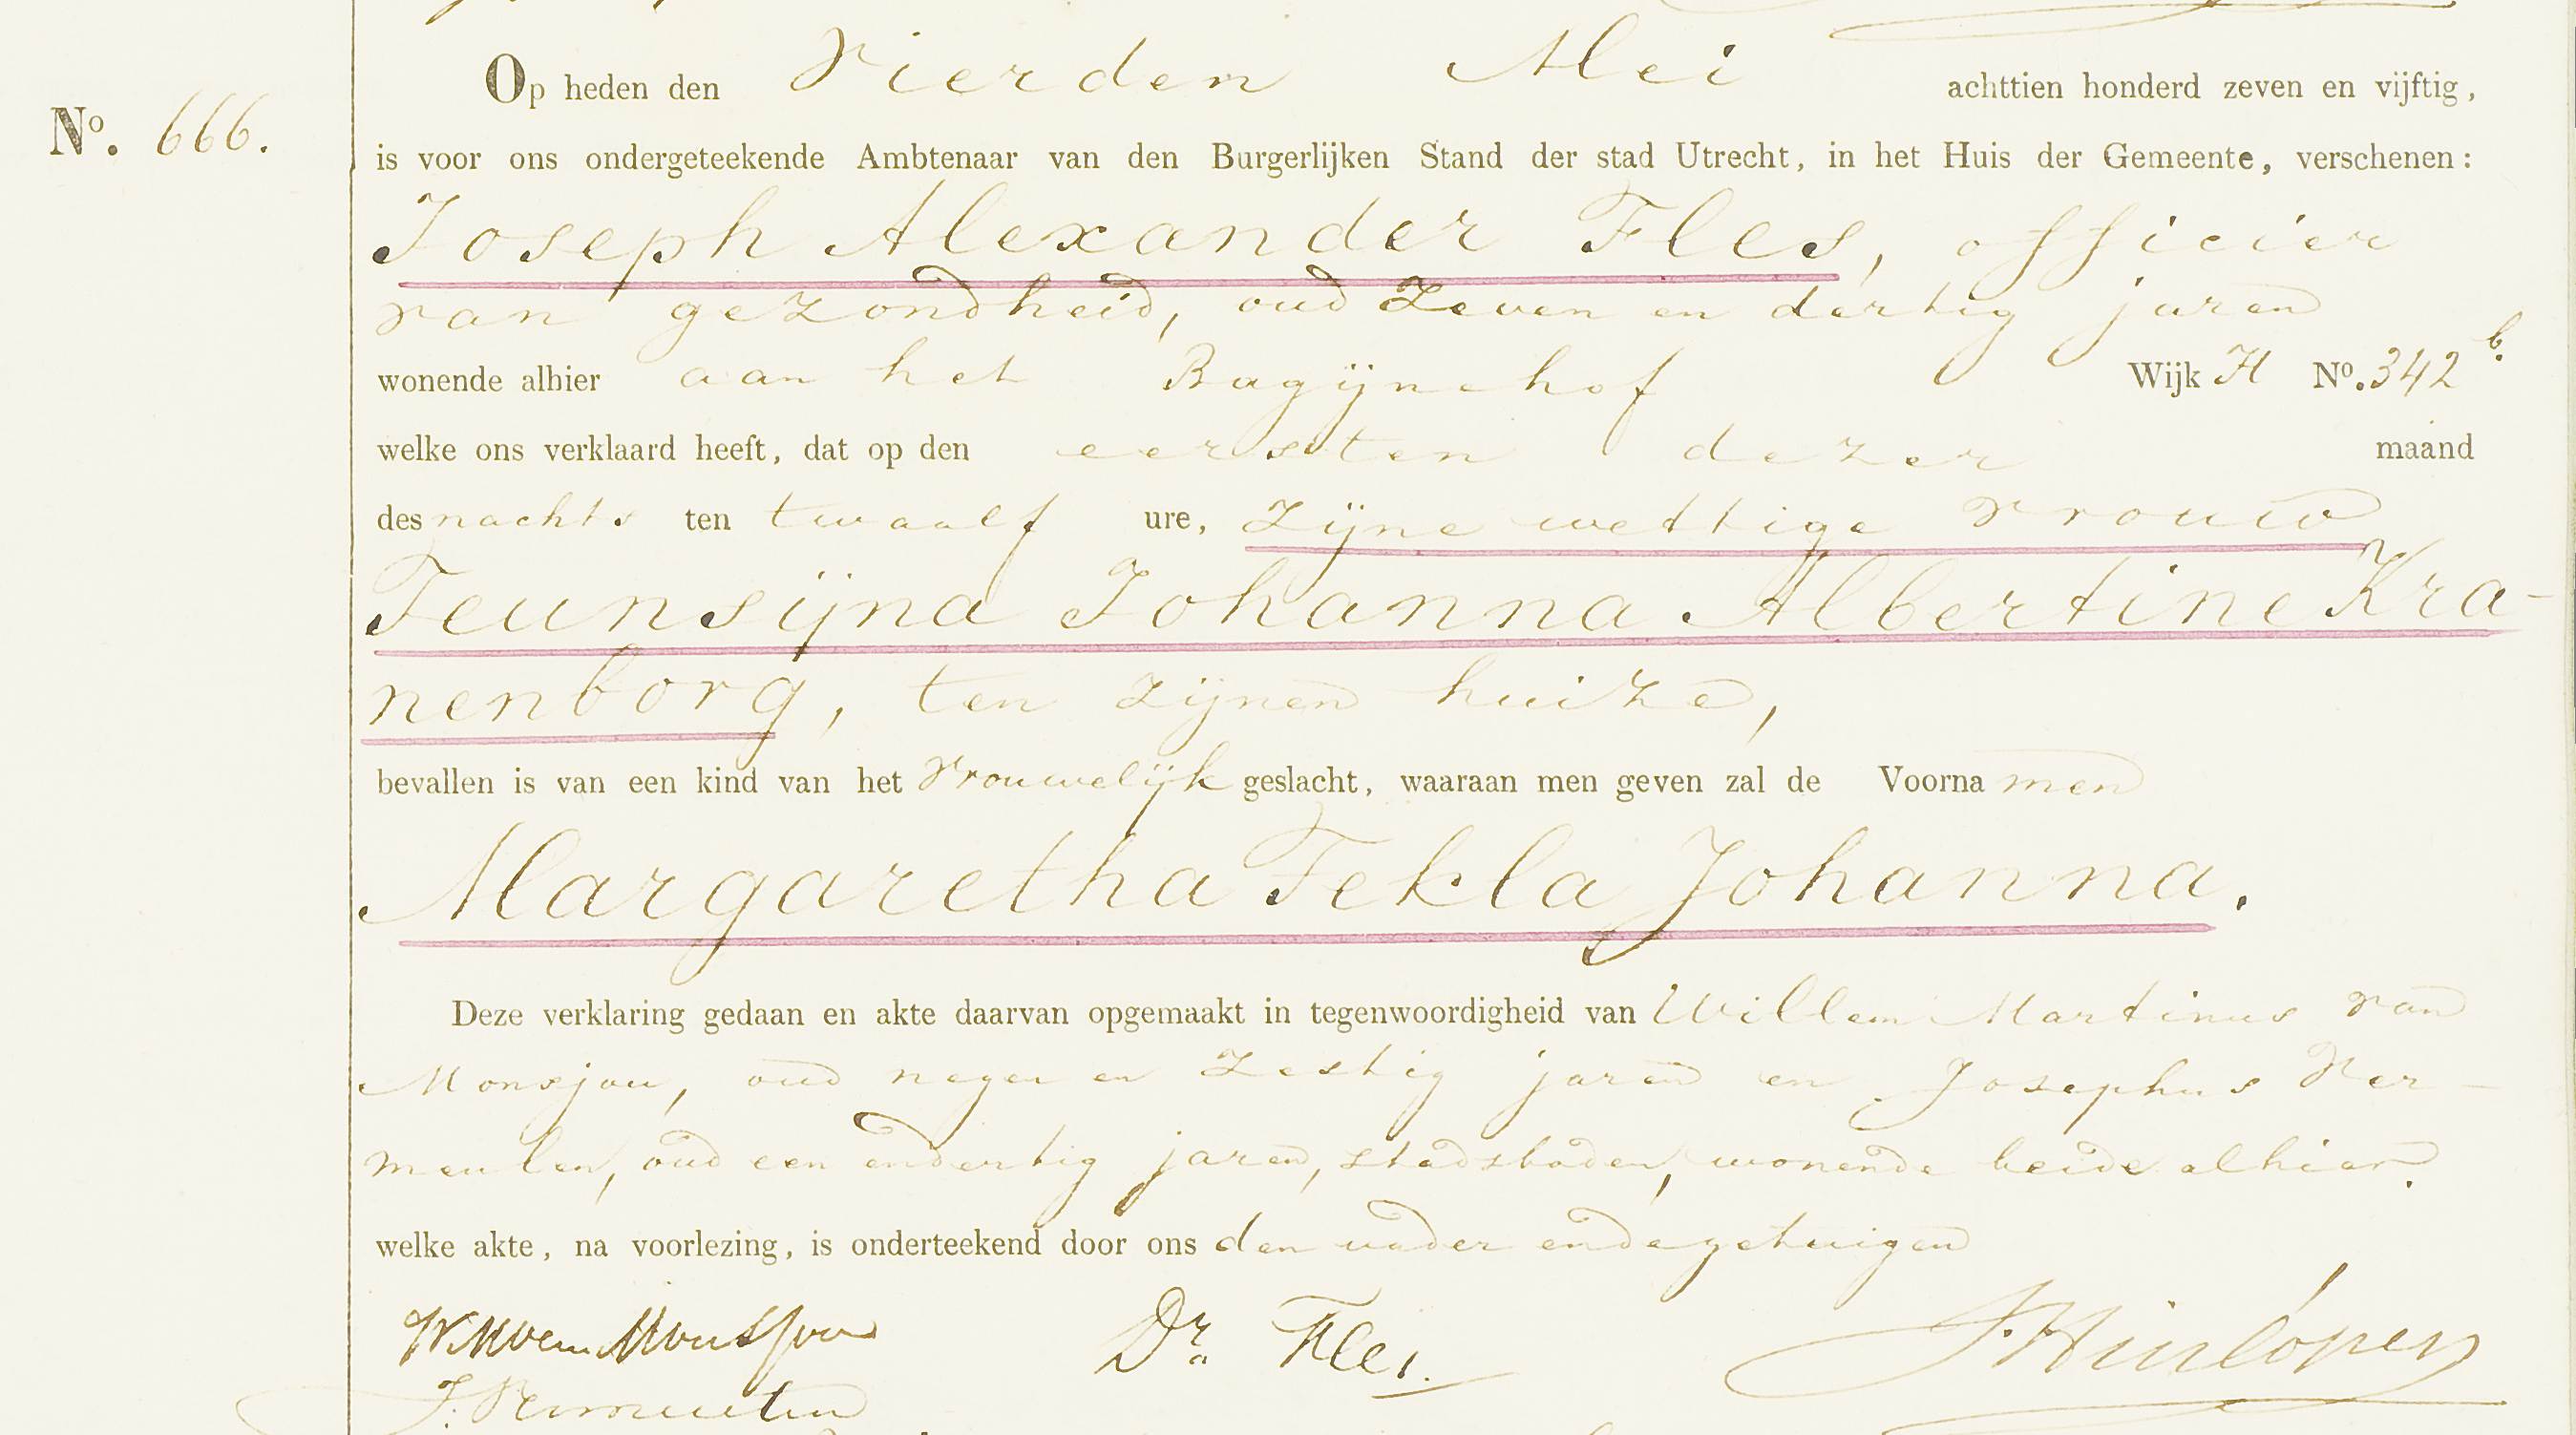 Op heden den Vierden Mei achttien honderd zeven en vijftig,
No. 666.
is voor ons ondergeteekende Ambtenaar van den Burgerlijken Stand der stad Utrecht, in het Huis der Gemeente, verschenen:
Joseph Alexander Fles, officier
van gezondheid, oud Zeven en dertig jaren
wonende alhier aan het Bagijnehof Wijk H No. 342 b.
welke ons verklaard heeft, dat op den eersten dezer maand
des nachts ten twaalf ure, Zijne wettige vrouw
Teunsijna Johanna Albertine Kra-
nenborg, ten Zijnen huize,
bevallen is van een kind van het Vrouwelijk geslacht, waaraan men geven zal de Voorna men
Margaretha Tekla Johanna.
Deze verklaring gedaan en akte daarvan opgemaakt in tegenwoordigheid van Willem Martinus van
Monsjou, oud negen en Zestig jaren en Josephus Ver-
meulen, oud een en dertig jaren, stadsboden, wonende beide alhier.
welke akte, na voorlezing, is onderteekend door ons den vader en de getuigen
WM van Monsjou Dr. Fles. J. Hinlópen
J. Vermeulen